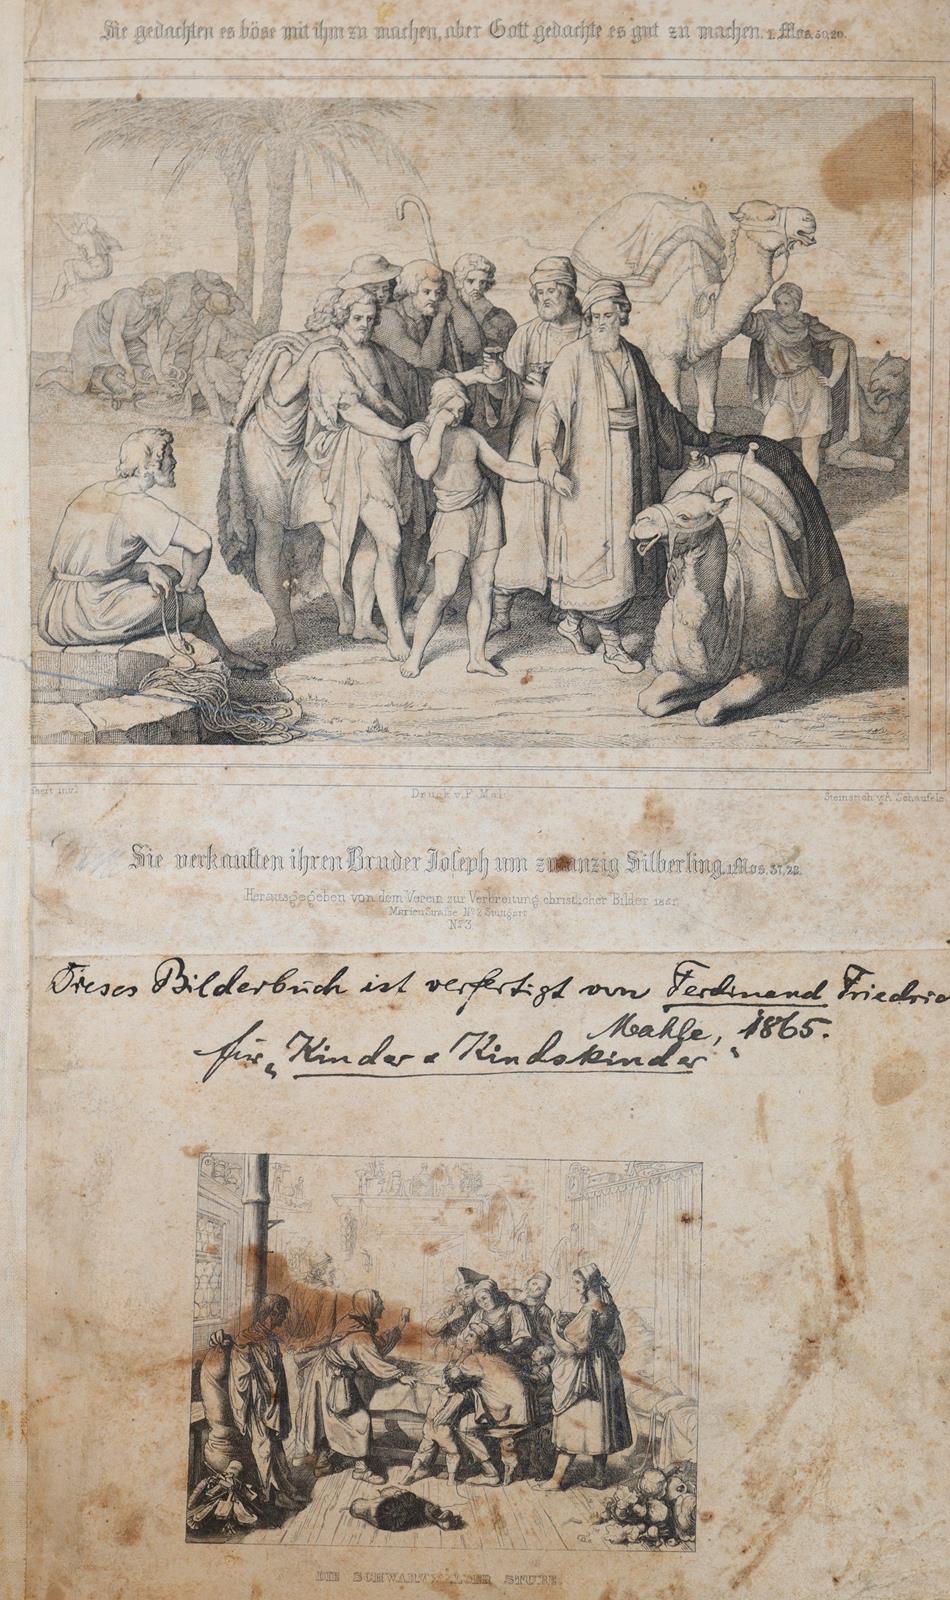 Sie gedachten es böse mit ihm zu machen, aber Gott gedachte es gut zu machen. 1. Mos. 50,20.
Druck v. F. Mal
Steinstich v. A. Schaufele
Sie verkauften ihren Bruder Joseph um zwanzig Silberling. 1 Mos. 37, 28.
Herausgegeben von dem Verein zur Verbreitung christlicher Bilder
Marien Straße No. 2 Stuttgart
No. 3.
Dieses Bilderbuch ist verfertigt von Ferdinand Friedric
Mahle, 1865.
für „Kinder & Kindskinder"
DIE SCHWARZWÄLDER STUBE.